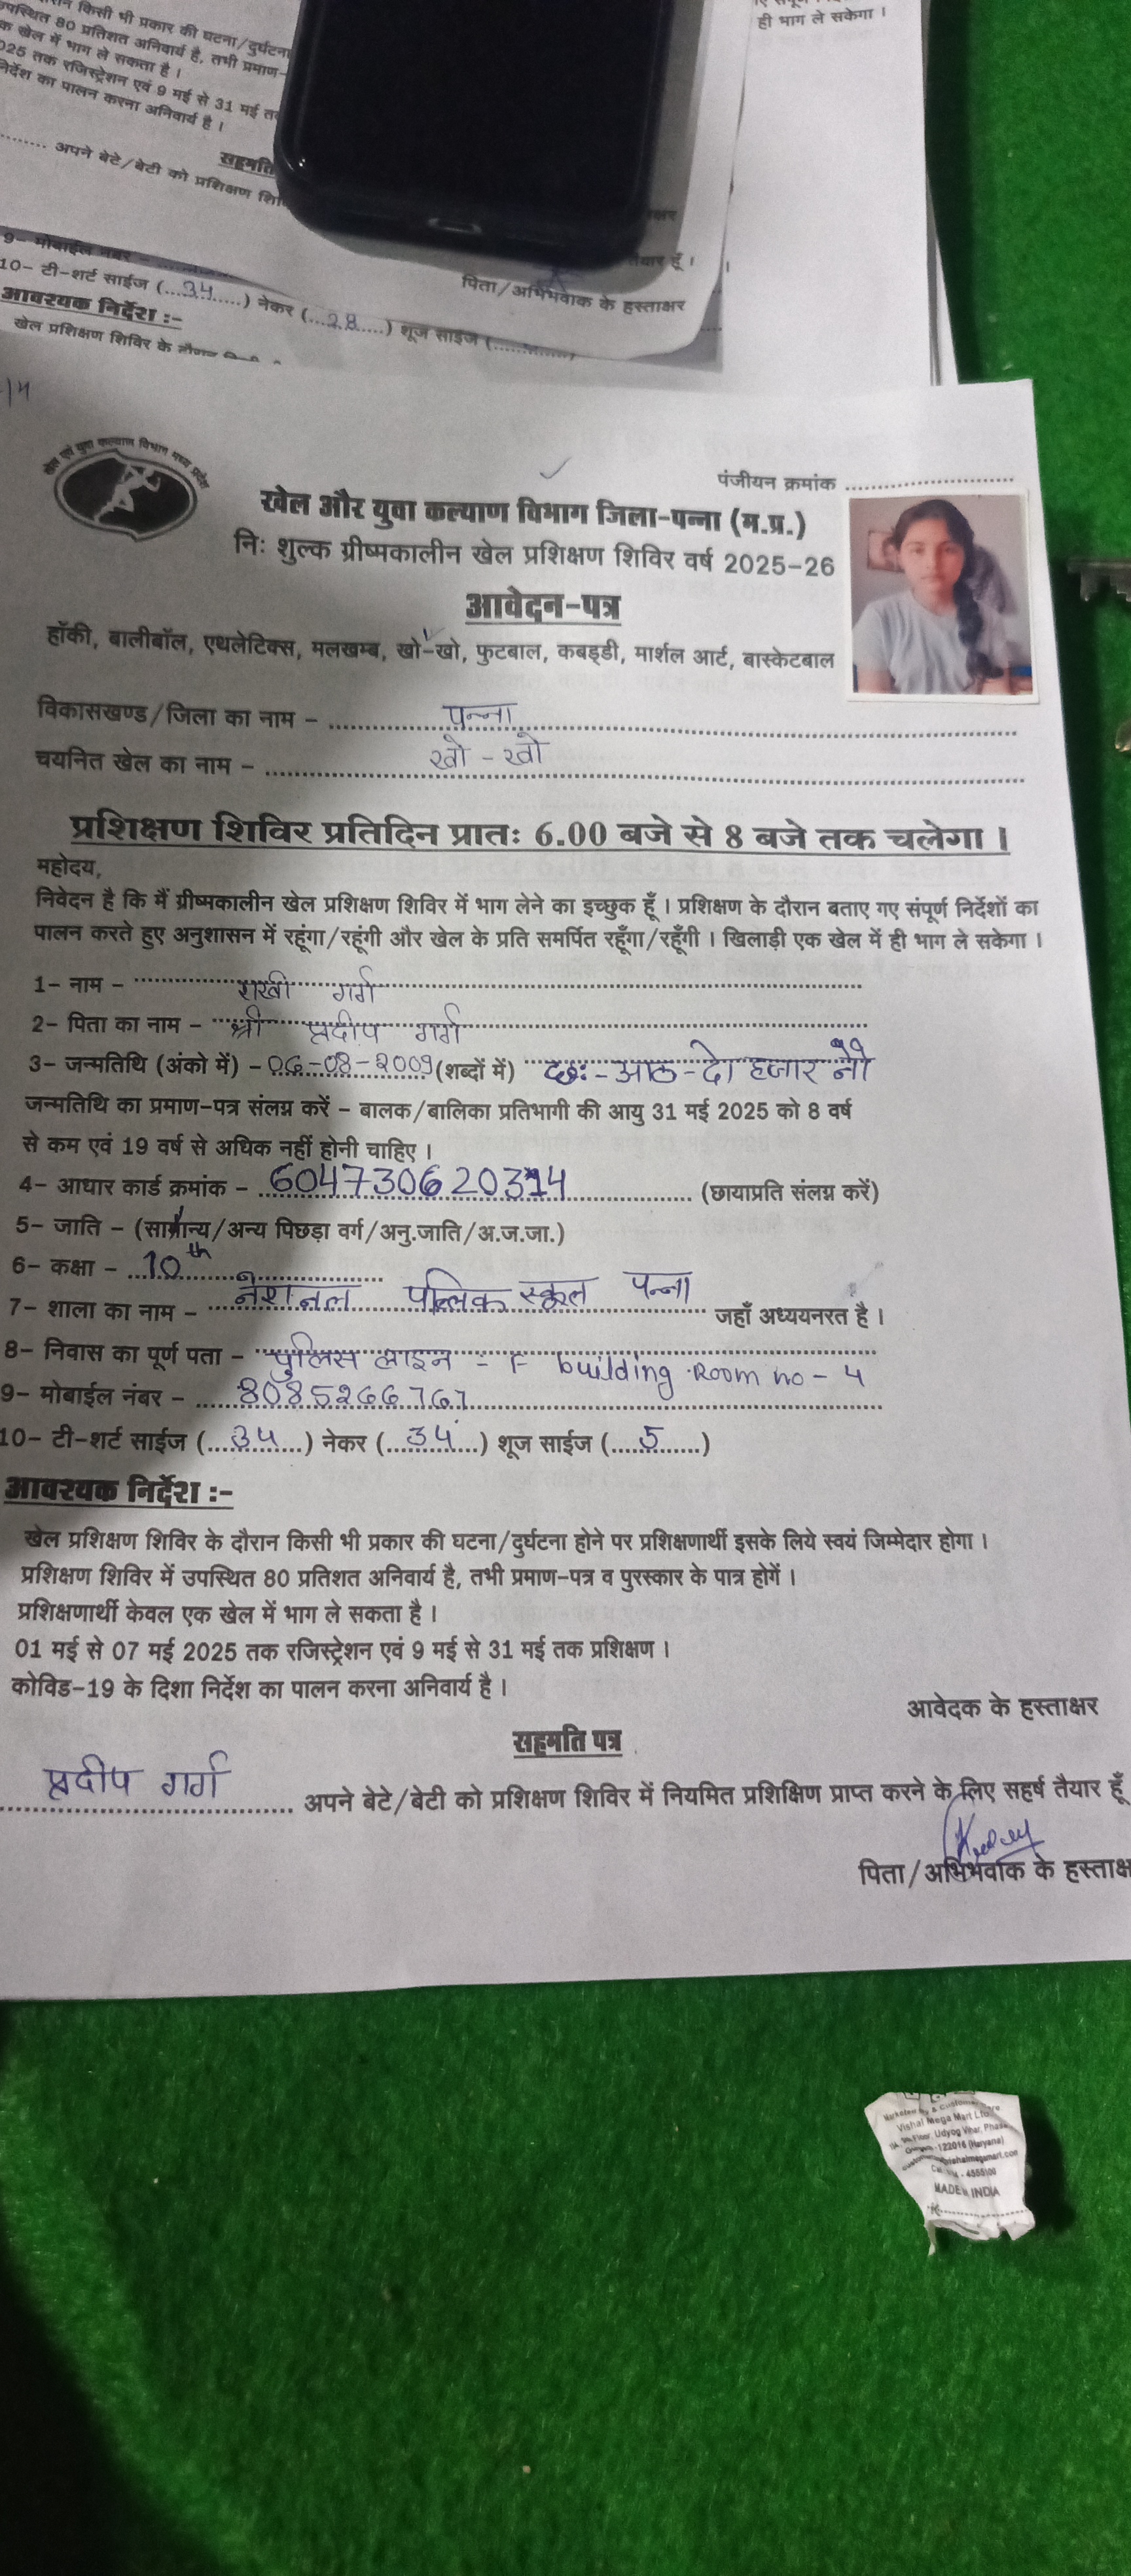 किसी भी प्रकार की घटना/दुर्घटना
उपस्थित 80 प्रतिशत अनिवार्य है, तभी प्रमाण-
क खेल में भाग ले सकता है ।
025 तक रजिस्ट्रेशन एवं 9 मई से 31 मई तक
निर्देश का पालन करना अनिवार्य है ।
सहमति
अपने बेटे/बेटी को प्रशिक्षण
ही भाग ले सकेगा ।
तैयार हूँ ।
पिता/अभिभवाक के हस्ताक्षर
9- मोबाईल नंबर -
10- टी-शर्ट साईज (...34......) नेकर (...28.....) शूज साईज (............)
आवश्यक निर्देश :-
खेल प्रशिक्षण शिविर के दौरान
खेल एवं युवा कल्याण विभाग मध्य प्रदेश
पंजीयन क्रमांक ..........................
खेल और युवा कल्याण विभाग जिला-पन्ना (म.प्र.)
निः शुल्क ग्रीष्मकालीन खेल प्रशिक्षण शिविर वर्ष 2025-26
आवेदन-पत्र
हॉकी, बालीबॉल, एथलेटिक्स, मलखम्ब, खो-खो, फुटबाल, कबड्डी, मार्शल आर्ट, बास्केटबाल
विकासखण्ड/जिला का नाम - पन्ना
चयनित खेल का नाम - खो - खो
प्रशिक्षण शिविर प्रतिदिन प्रातः 6.00 बजे से 8 बजे तक चलेगा ।
महोदय,
निवेदन है कि मैं ग्रीष्मकालीन खेल प्रशिक्षण शिविर में भाग लेने का इच्छुक हूँ । प्रशिक्षण के दौरान बताए गए संपूर्ण निर्देशों का
पालन करते हुए अनुशासन में रहूंगा/रहूंगी और खेल के प्रति समर्पित रहूँगा/रहूँगी । खिलाड़ी एक खेल में ही भाग ले सकेगा ।
1- नाम - राखी गर्ग
2- पिता का नाम - श्री प्रदीप गर्ग
3- जन्मतिथि (अंको में) - 06-08-2009 (शब्दों में) छः-आठ-दो हजार नौ
जन्मतिथि का प्रमाण-पत्र संलग्न करें - बालक/बालिका प्रतिभागी की आयु 31 मई 2025 को 8 वर्ष
से कम एवं 19 वर्ष से अधिक नहीं होनी चाहिए ।
4- आधार कार्ड क्रमांक - 604730620314 (छायाप्रति संलग्न करें)
5- जाति - (सामान्य/अन्य पिछड़ा वर्ग/अनु.जाति/अ.ज.जा.)
6- कक्षा - 10th
7- शाला का नाम - नेशनल पब्लिक स्कूल पन्ना जहाँ अध्ययनरत है ।
8- निवास का पूर्ण पता - पुलिस लाइन - F building Room no - 4
9- मोबाईल नंबर - 8085266767
10- टी-शर्ट साईज (...34......) नेकर (...34....) शूज साईज (....5.......)
आवश्यक निर्देश :-
खेल प्रशिक्षण शिविर के दौरान किसी भी प्रकार की घटना/दुर्घटना होने पर प्रशिक्षणार्थी इसके लिये स्वयं जिम्मेदार होगा ।
प्रशिक्षण शिविर में उपस्थित 80 प्रतिशत अनिवार्य है, तभी प्रमाण-पत्र व पुरस्कार के पात्र होगें ।
प्रशिक्षणार्थी केवल एक खेल में भाग ले सकता है ।
01 मई से 07 मई 2025 तक रजिस्ट्रेशन एवं 9 मई से 31 मई तक प्रशिक्षण ।
कोविड-19 के दिशा निर्देश का पालन करना अनिवार्य है ।
आवेदक के हस्ताक्षर
सहमति पत्र
प्रदीप गर्ग अपने बेटे/बेटी को प्रशिक्षण शिविर में नियमित प्रशिक्षिण प्राप्त करने के लिए सहर्ष तैयार हूँ
पिता/अभिभवाक के हस्ताक्ष
Vishal Mega Mart Ltd.
Udyog Vihar, Phase
122016 (Haryana)
MADE IN INDIA